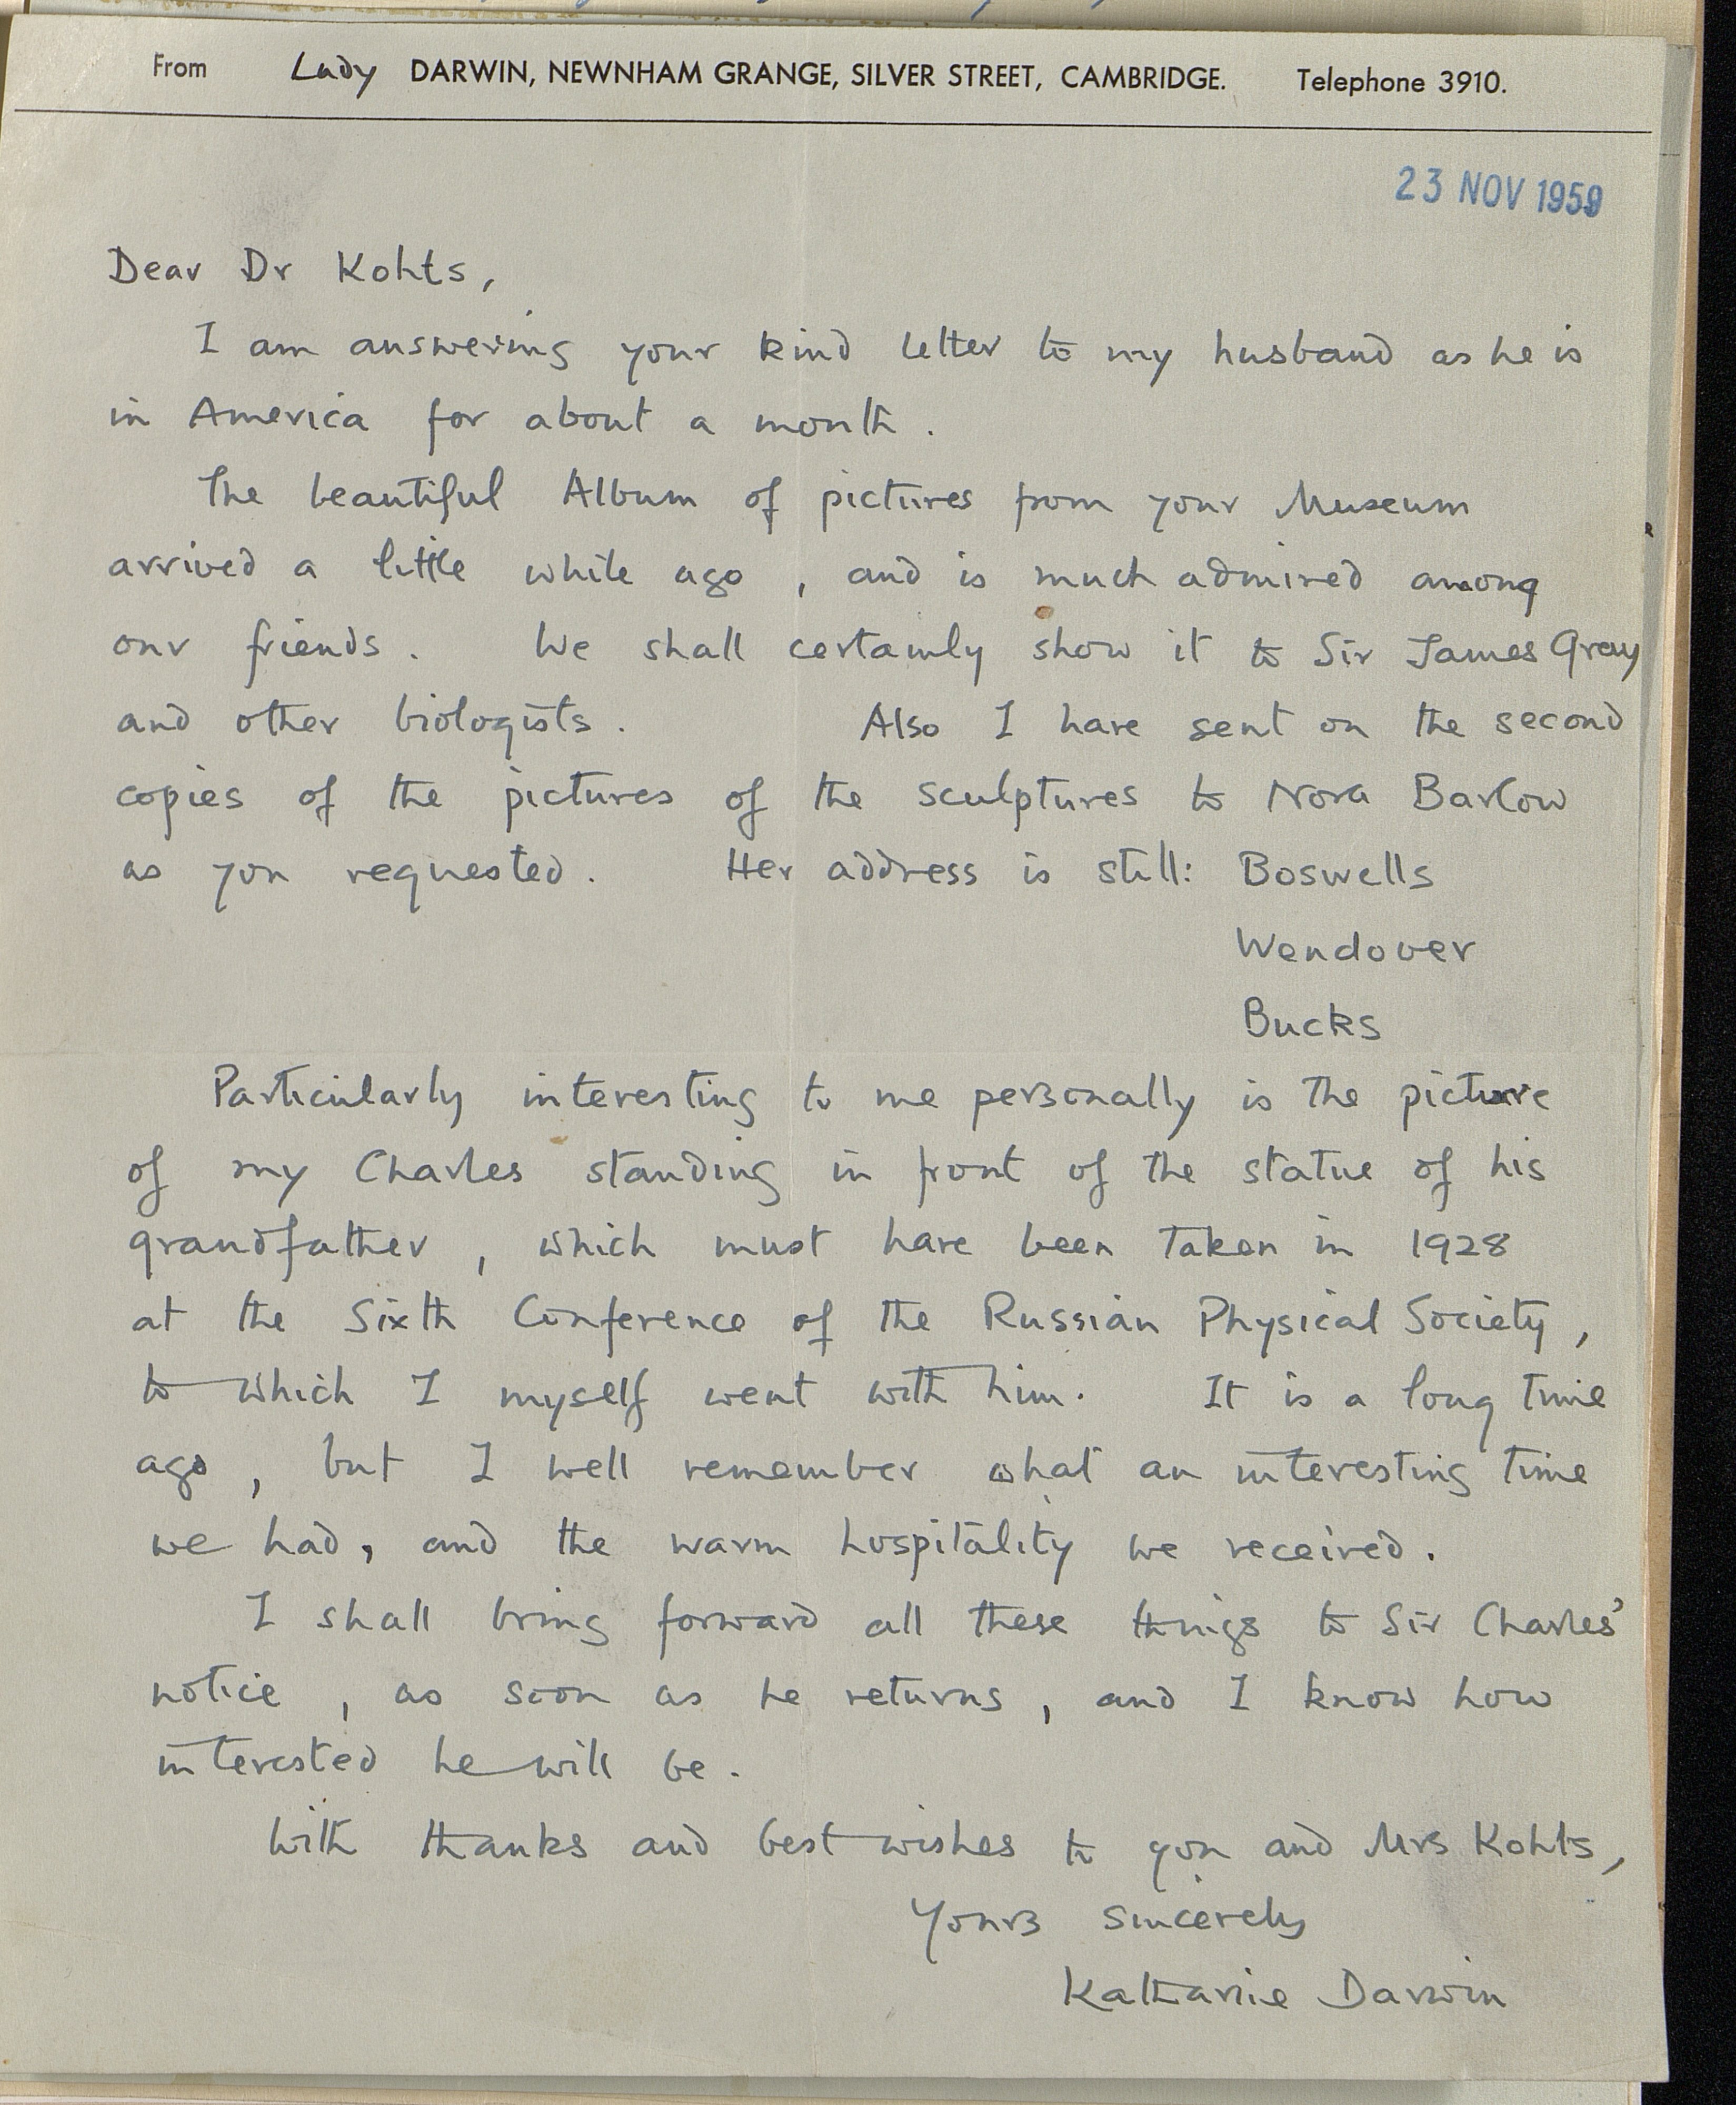 From Lady DARWIN, NEWNHAM GRANGE, SILVER STREET, CAMBRIDGE. Telephone 3910.
23 NOV 1959
Dear Dr Kohts,
I am answering your kind letter to my husband as he is
in America for about a month.
The beautiful Album of pictures from your Museum
arrived a little while ago, and is much admired among
our friends. We shall certainly show it to Sir James Gray
and other biologists. Also I have sent on the second
copies of the pictures of the sculptures to Nora Barlow
as you requested. Her address is still: Boswells
Wendover
Bucks
Particularly interesting to me personally is the picture
of my Charles standing in front of the statue of his
grandfather, which must have been taken in 1928
at the Sixth Conference of the Russian Physical Society,
to which I myself went with him. It is a long time
ago, but I well remember what an interesting time
we had, and the warm hospitality we received.
I shall bring forward all these things to Sir Charles'
notice, as soon as he returns, and I know how
interested he will be.
With thanks and best wishes to you and Mrs Kohts,
Yours sincerely
Katharine Darwin